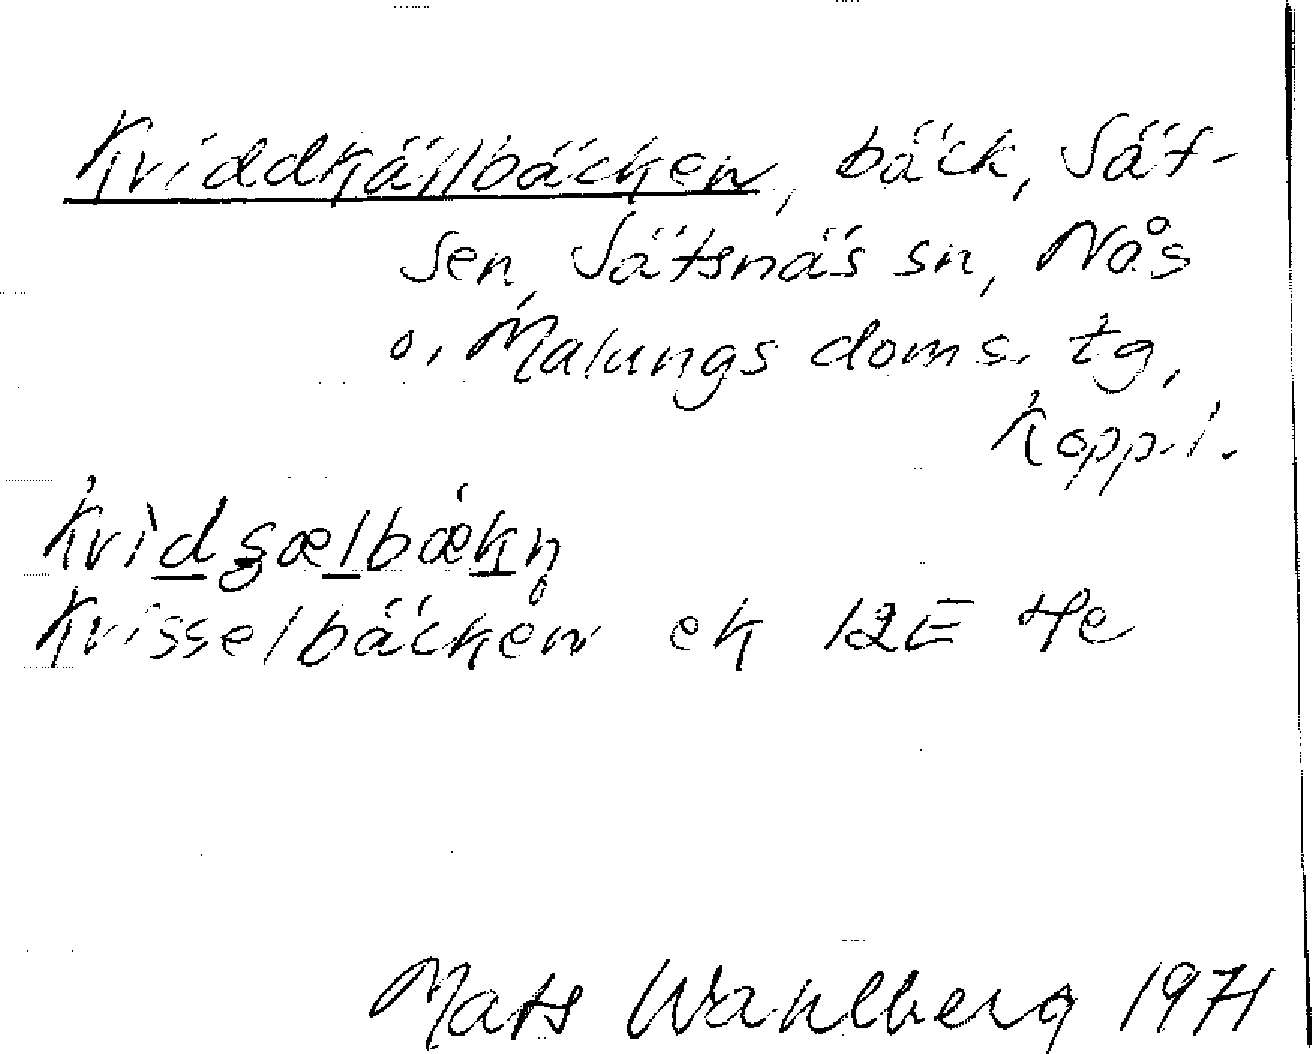 Kviddkällbäcken, bäck, Sät-
sen, Sätsnäs sn, Nås
o. Malungs doms. tg,
Kopp. l.
Krisselbäcken ek 12E 4e
Mats Wahlberg 1971